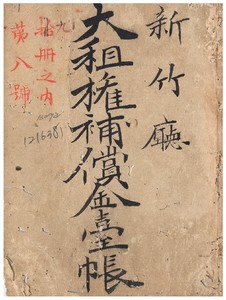 新竹廳
大租権補償金臺帳
九
拾冊之內
第八號